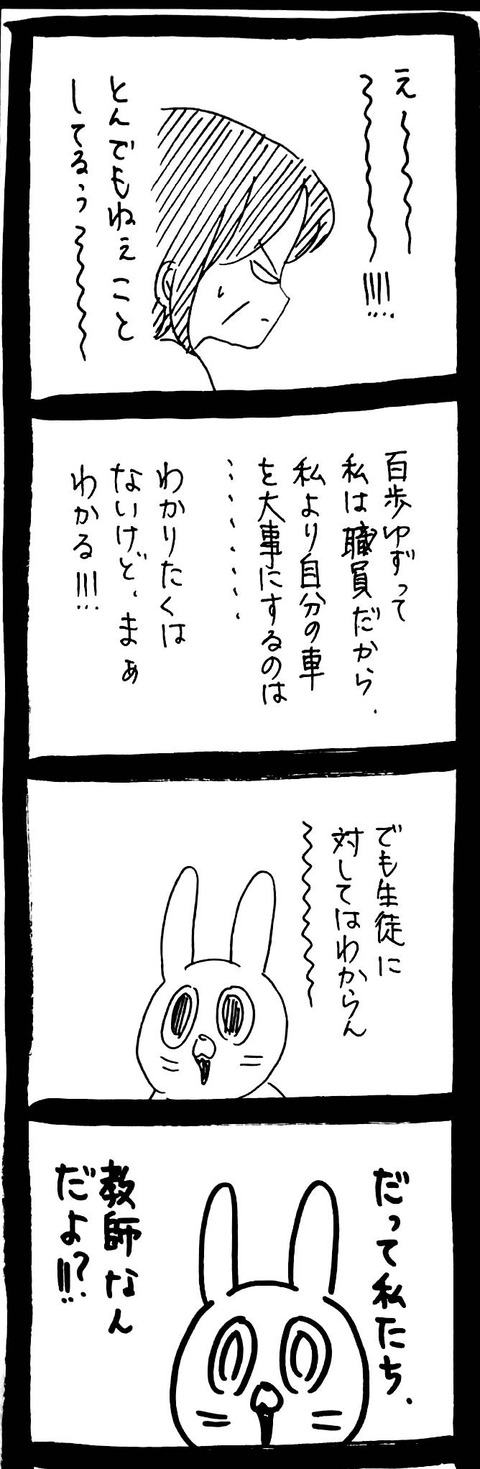 え〜〜〜〜
〜〜〜〜〜!!!!
とんでもねぇこと
してるぅぅ〜〜〜〜
百歩ゆずって
私は職員だから、
私より自分の車
を大事にするのは
・・・・・・・
わかりたくは
ないけど、まぁ
わかる!!!
でも生徒に
対してはわからん
〜〜〜〜〜
だって私たち、
教師なん
だよ!!?